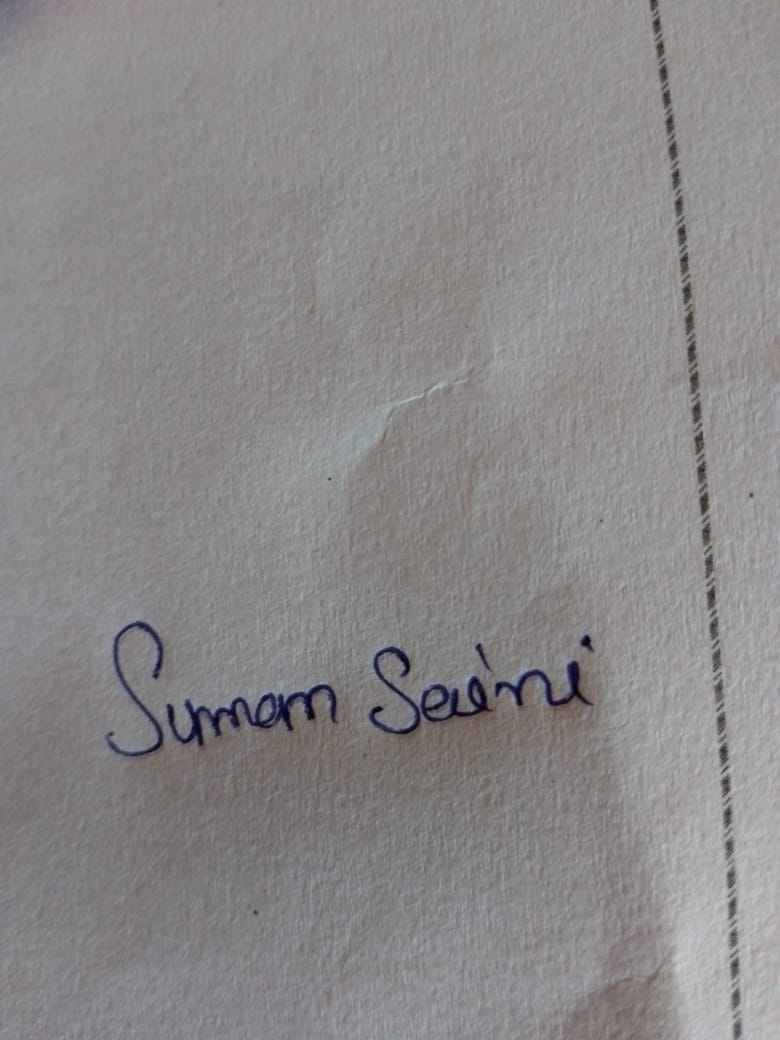 Suman Saini